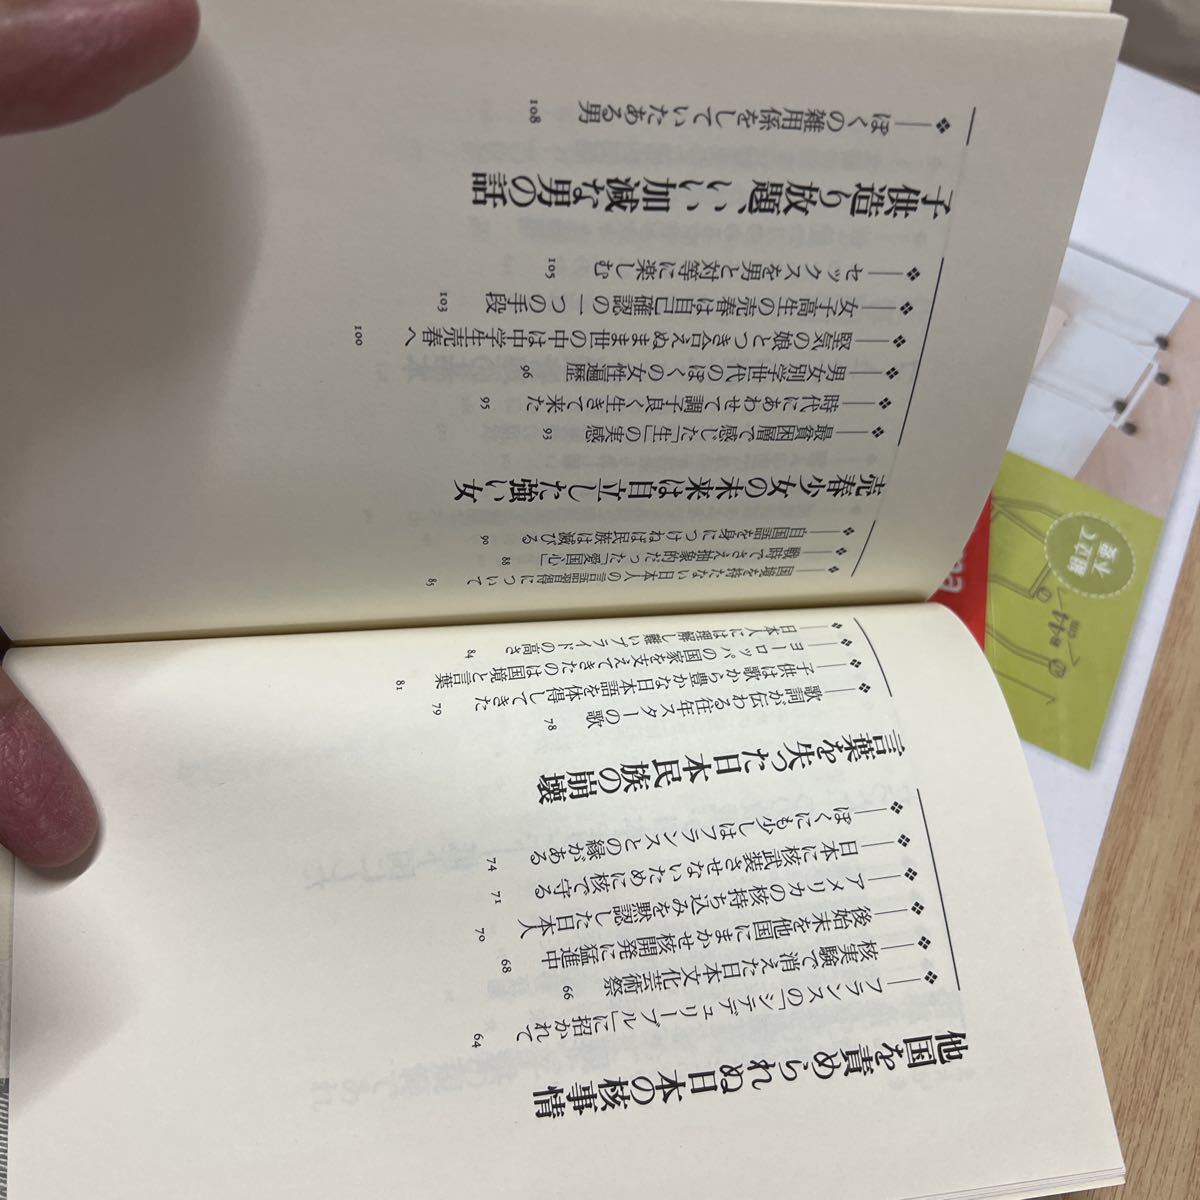 他国を責められぬ日本の核事情
❖――フランスの「シテデュリーブル」に招かれて 64
❖――核実験で消えた日本文化芸術祭 66
❖――後始末を他国にまかせ核開発に猛進中 68
❖――アメリカの核持ち込みを黙認した日本人 70
❖――日本に核武装させないために核で守る 71
❖――ぼくにも少しはフランスとの縁がある 74
言葉を失った日本民族の崩壊
❖――歌詞が伝わる往年スターの歌 78
❖――子供は歌から豊かな日本語を体得してきた 79
❖――ヨーロッパの国家を支えてきたのは国境と言葉 81
❖――日本人には理解し難いプライドの高さ 84
❖――国境を持たない日本人の言語習得について 85
❖――戦時でさえ抽象的だった「愛国心」 88
❖――自国語を身につけねば民族は滅びる 90
売春少女の未来は自立した強い女
❖――最貧困層で感じた「生」の実感 93
❖――時代にあわせて調子良く生きて来た 95
❖――男女別学世代のぼくの女性遍歴 96
❖――堅気の娘とつき合えぬまま世の中は中学生売春へ 100
❖――女子高生の売春は自己確認の一つの手段 103
❖――セックスを男と対等に楽しむ 105
子供造り放題、いい加減な男の話
❖――ぼくの雑用係をしていたある男 108